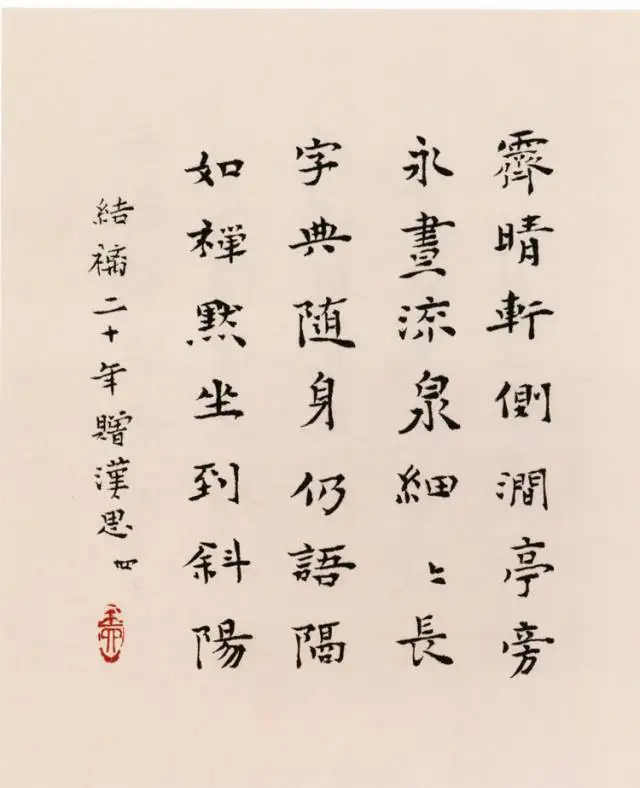 霽晴軒側澗亭旁
永晝流泉細〻長
字典隨身仍語隔
如禪默坐到斜陽
結褵二十年贈漢思 四